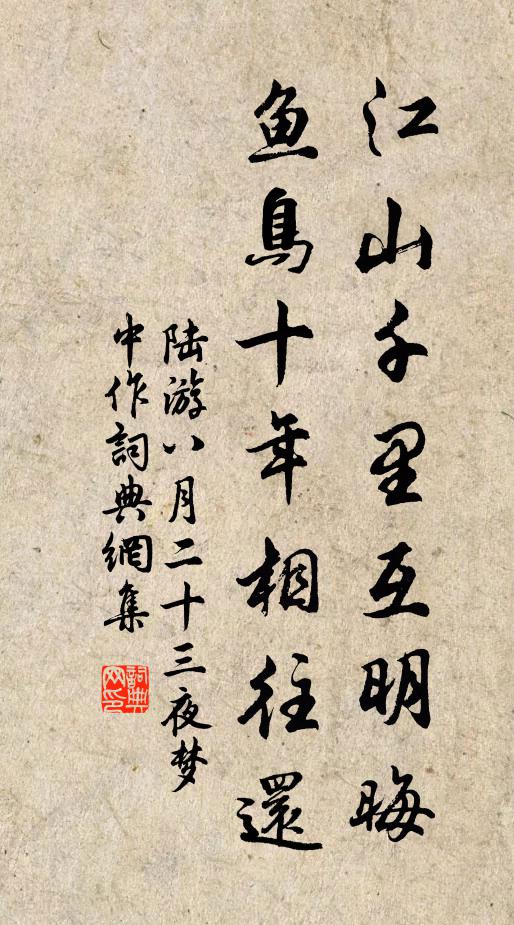 江山千里互明晦
鱼鳥十年相往還
陆游八月二十三夜梦
中作詞典網集
詞典
网印